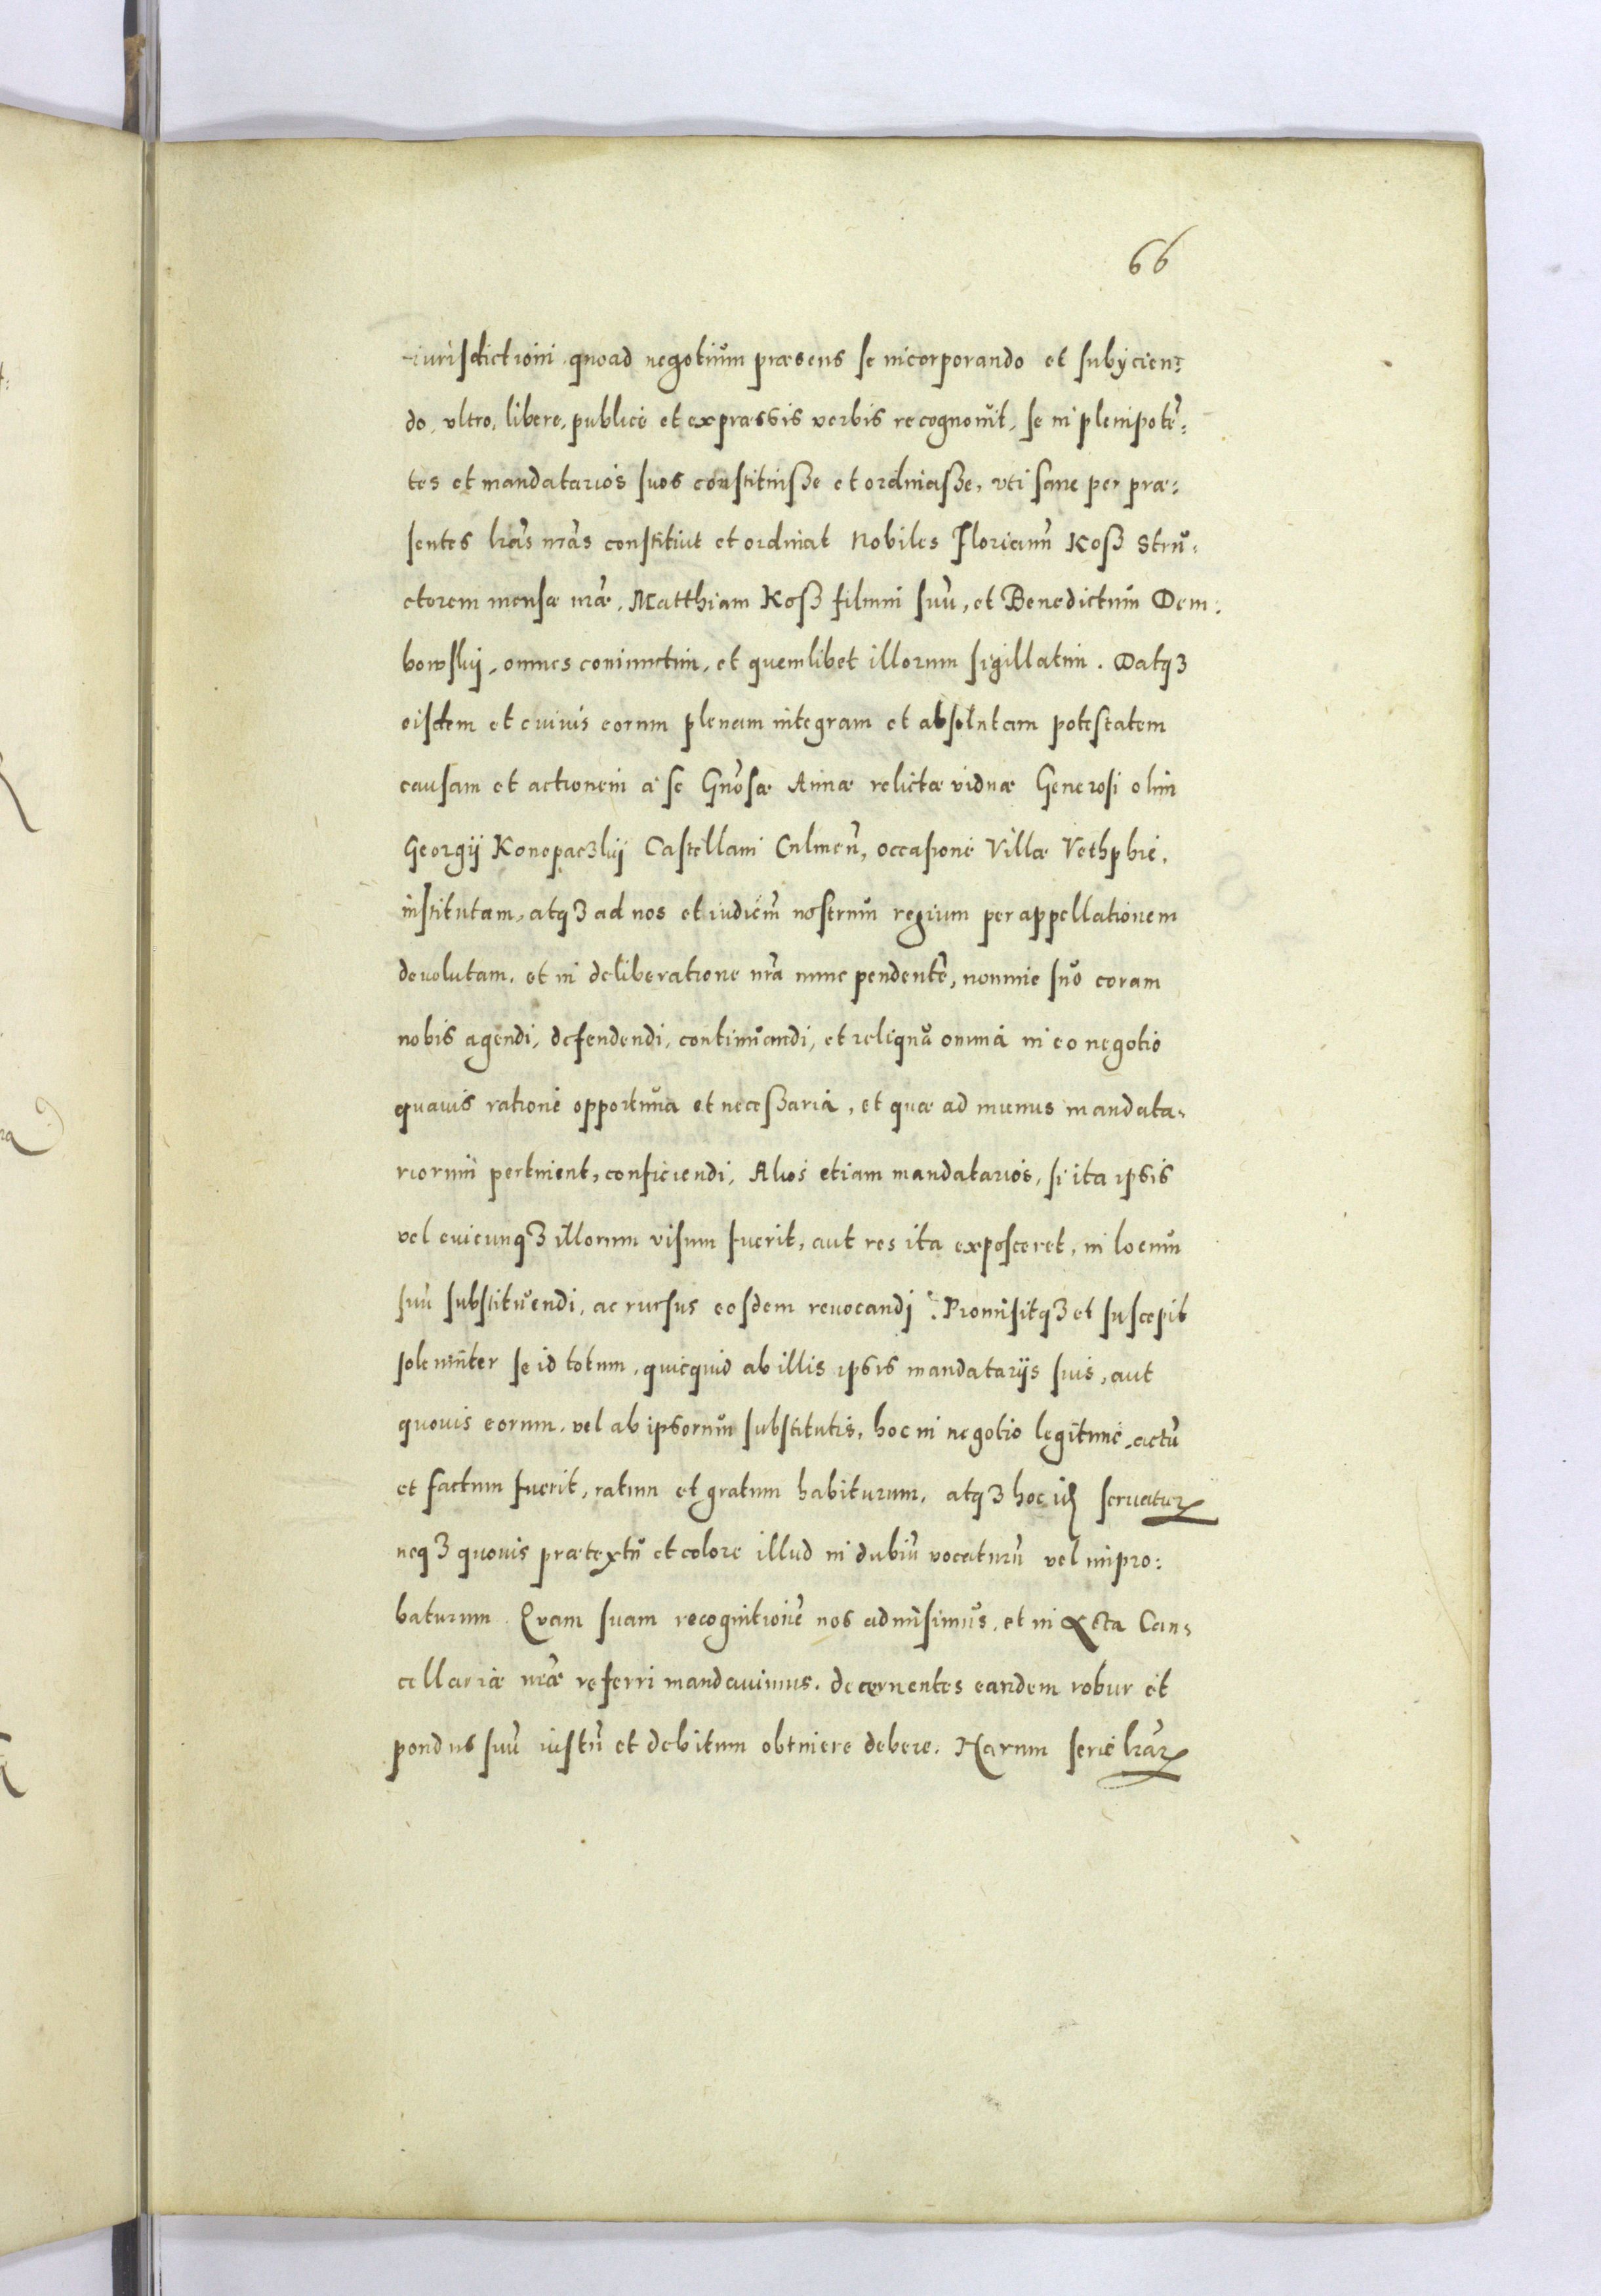 66
iurisdictioni quoad negotium præsens se incorporando et subÿcien=
do, vltro, libere, publice et expraessis verbis recognouit, se in plenipotẽ=
tes et mandatarios suos constituisse et ordinasse, vti sane per præ=
sentes lr̃as nr̃as constituit et ordinat Nobiles Florianũ Kosz Stru=
ctorem mensæ nr̃æ, Matthiam Kosz filium suũ, et Benedictum Dem=
bowskij, omnes coniunctim, et quemlibet illorum sigillatim. Datqȝ
eisdem et cuiuis eorum plenam integram et absolutam potestatem
causam et actionem a se Gñosæ Annæ relictæ viduæ Generosi olim
Georgij Konopaczkij Castellani Culmeñ, occasione Villæ
institutam, atqȝ ad nos et iudiciũ nostrum regium per appellationem
deuolutam, et in deliberatione nr̃a nunc pendentẽ, nomine suo coram
nobis agendi, defendendi, continuandi, et reliqua omnia in eo negotio
quauis ratione opportuna et necessaria, et quæ ad munus mandata=
riorum pertinent, conficiendi, Alios etiam mandatarios, si ita ipsis
vel cuicunqȝ illorum visum fuerit, aut res ita exposceret, in locum
suũ substituendi, ac rursus eosdem reuocandj. Promisitqȝ et suscepit
solenniter se id totum, quicquid ab illis ipsis mandatarijs suis, aut
quouis eorum, vel ab ipsorum substitutis, hoc in negotio legitime actũ
et factum fuerit, ratum et gratum habiturum, atqȝ hoc servaturꝝ
neqȝ quouis prætextu et colore illud in dubiũ vocaturũ vel impro=
baturum. Quam suam recognitionẽ nos admisimus, et in Acta Can=
cellariæ nr̃æ referri mandauimus, decernentes eandem robur et
pondus suũ iustũ et debitum obtinere debere. Harum serie lr̃aꝝ